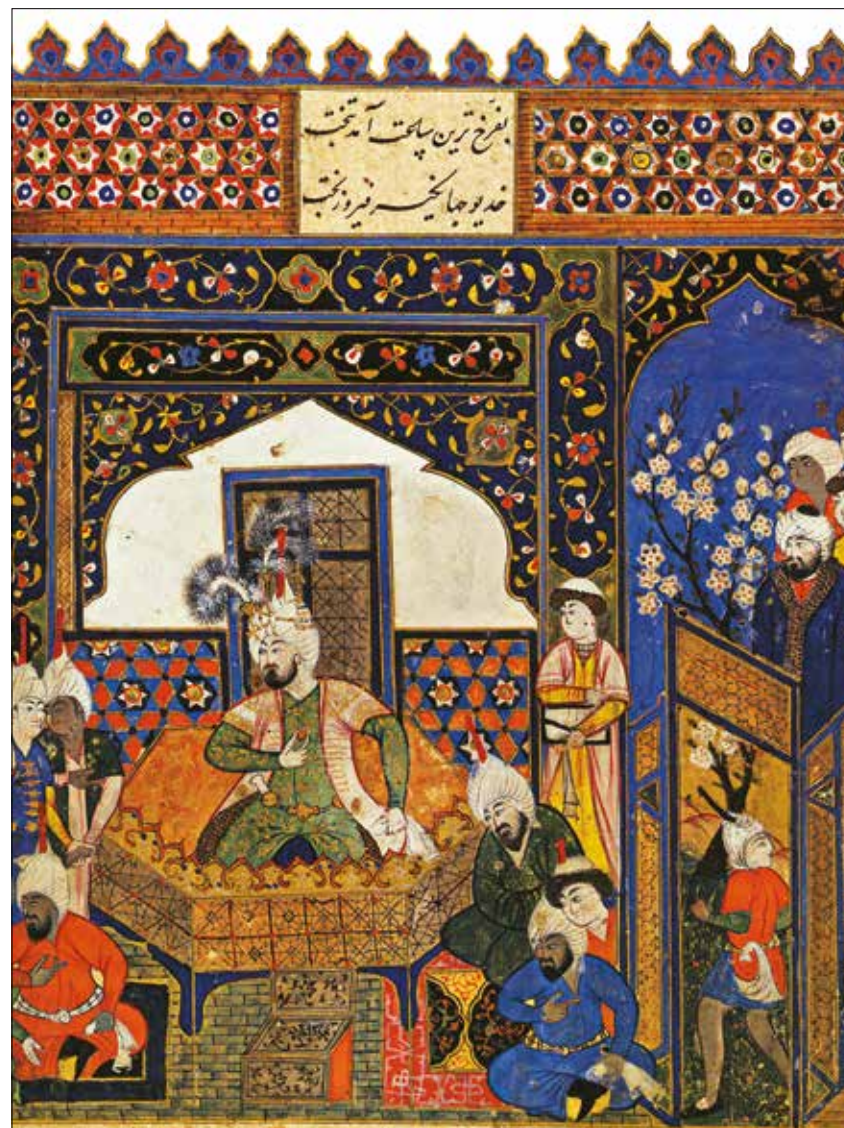 بفرخ ترین ساعت آمد بتخت
خدیو جهانکیر فیروز بخت